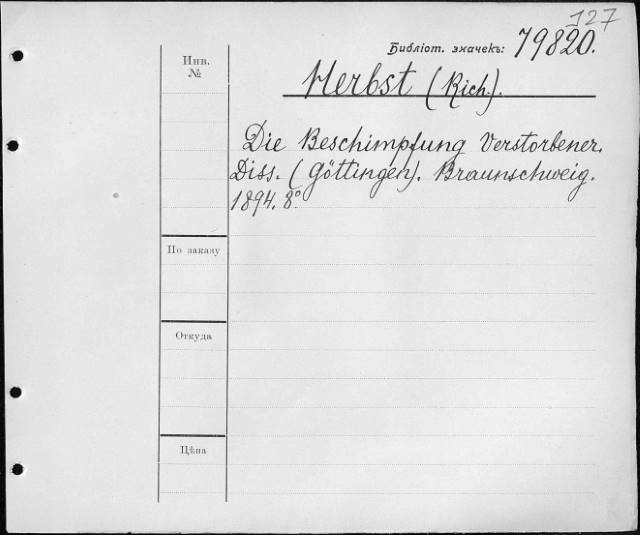 127
Библіот. значекъ: 79820.
Инв.
№
Herbst (Rich.).
Die Beschimpfung Verstorbener.
Diss. (Göttingen). Braunschweig.
1894. 8°.
По заказу
Откуда
Цѣна